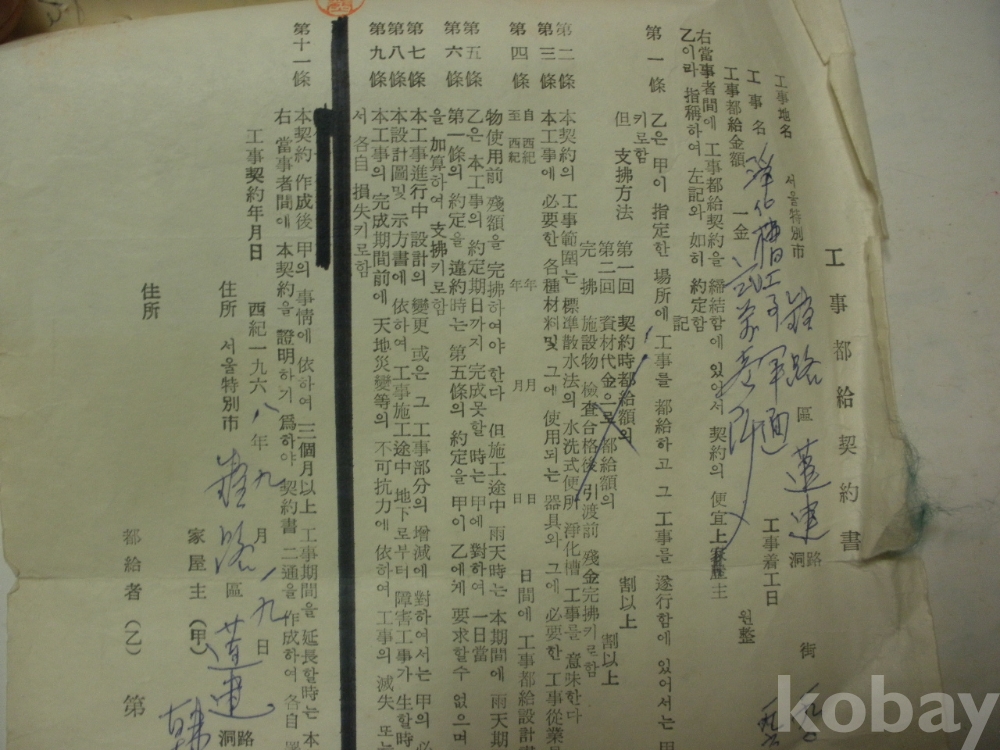 工事都給契約書
工事地名 서울特別市 鍾路 區 蓮建 洞路 街
工事名 淨化槽工事 工事着工日
工事都給金額 一金 원整
右當事者間에 工事都給契約을 締結함에 있어서 契約의 便宜上 家屋主
乙이라 指稱하여 左記와 如히 約定함
記
第一條 乙은 甲이 指定한 場所에 工事를 都給하고 그 工事를 遂行함에 있어서는 甲
키로함
但 支拂方法 第一回 契約時都給額의 割以上
第二回 資材代金으로 都給額의 割以上
完拂 施設物 檢査合格後 引渡前 殘金完拂키로함
第二條 本契約의 工事範圍는 標準散水法의 水洗式便所 淨化槽 工事를 意味한다
第三條 本工事에 必要한 各種材料및 그에 使用되는 器具와 그에 必要한 工事從業員
第四條 自 西紀 年 月 日
至 西紀 年 月 日 日間에 工事都給設計書
物使用前 殘額을 完拂하여야 한다 但施工途中 雨天時는 本期間에 雨天期
第五條 乙은 本工事의 約定期日까지 完成못할 時는 甲에 對하여 一日當
第六條 第一條의 約定을 違約時는 第五條의 約定을 甲이 乙에게 要求할수 없으며
을 加算하여 支拂키로함
第七條 本工事進行中 設計의 變更 或은 그 工事部分의 增減에 對하여서는 甲의 必
第八條 本設計圖및 示方書에 依하여 工事施工途中 地下로부터 障害工事가 生할時
第九條 本工事의 完成期間前에 天地災變等의 不可抗力에 依하여 工事의 滅失 또는
서 各自 損失키로함
第十一條 本契約 作成後 甲의 事情에 依하여 三個月以上 工事期間을 延長할時는 本
右 當事者間에 本契約을 證明하기 爲하야 契約書 二通을 作成하여 各自
工事契約年月日 西紀一九六八年 九月 一九日
住所 서울特別市 鍾路 區 蓮建 洞路
家屋主 (甲) 韓
住所
都給者 (乙) 第
kobay